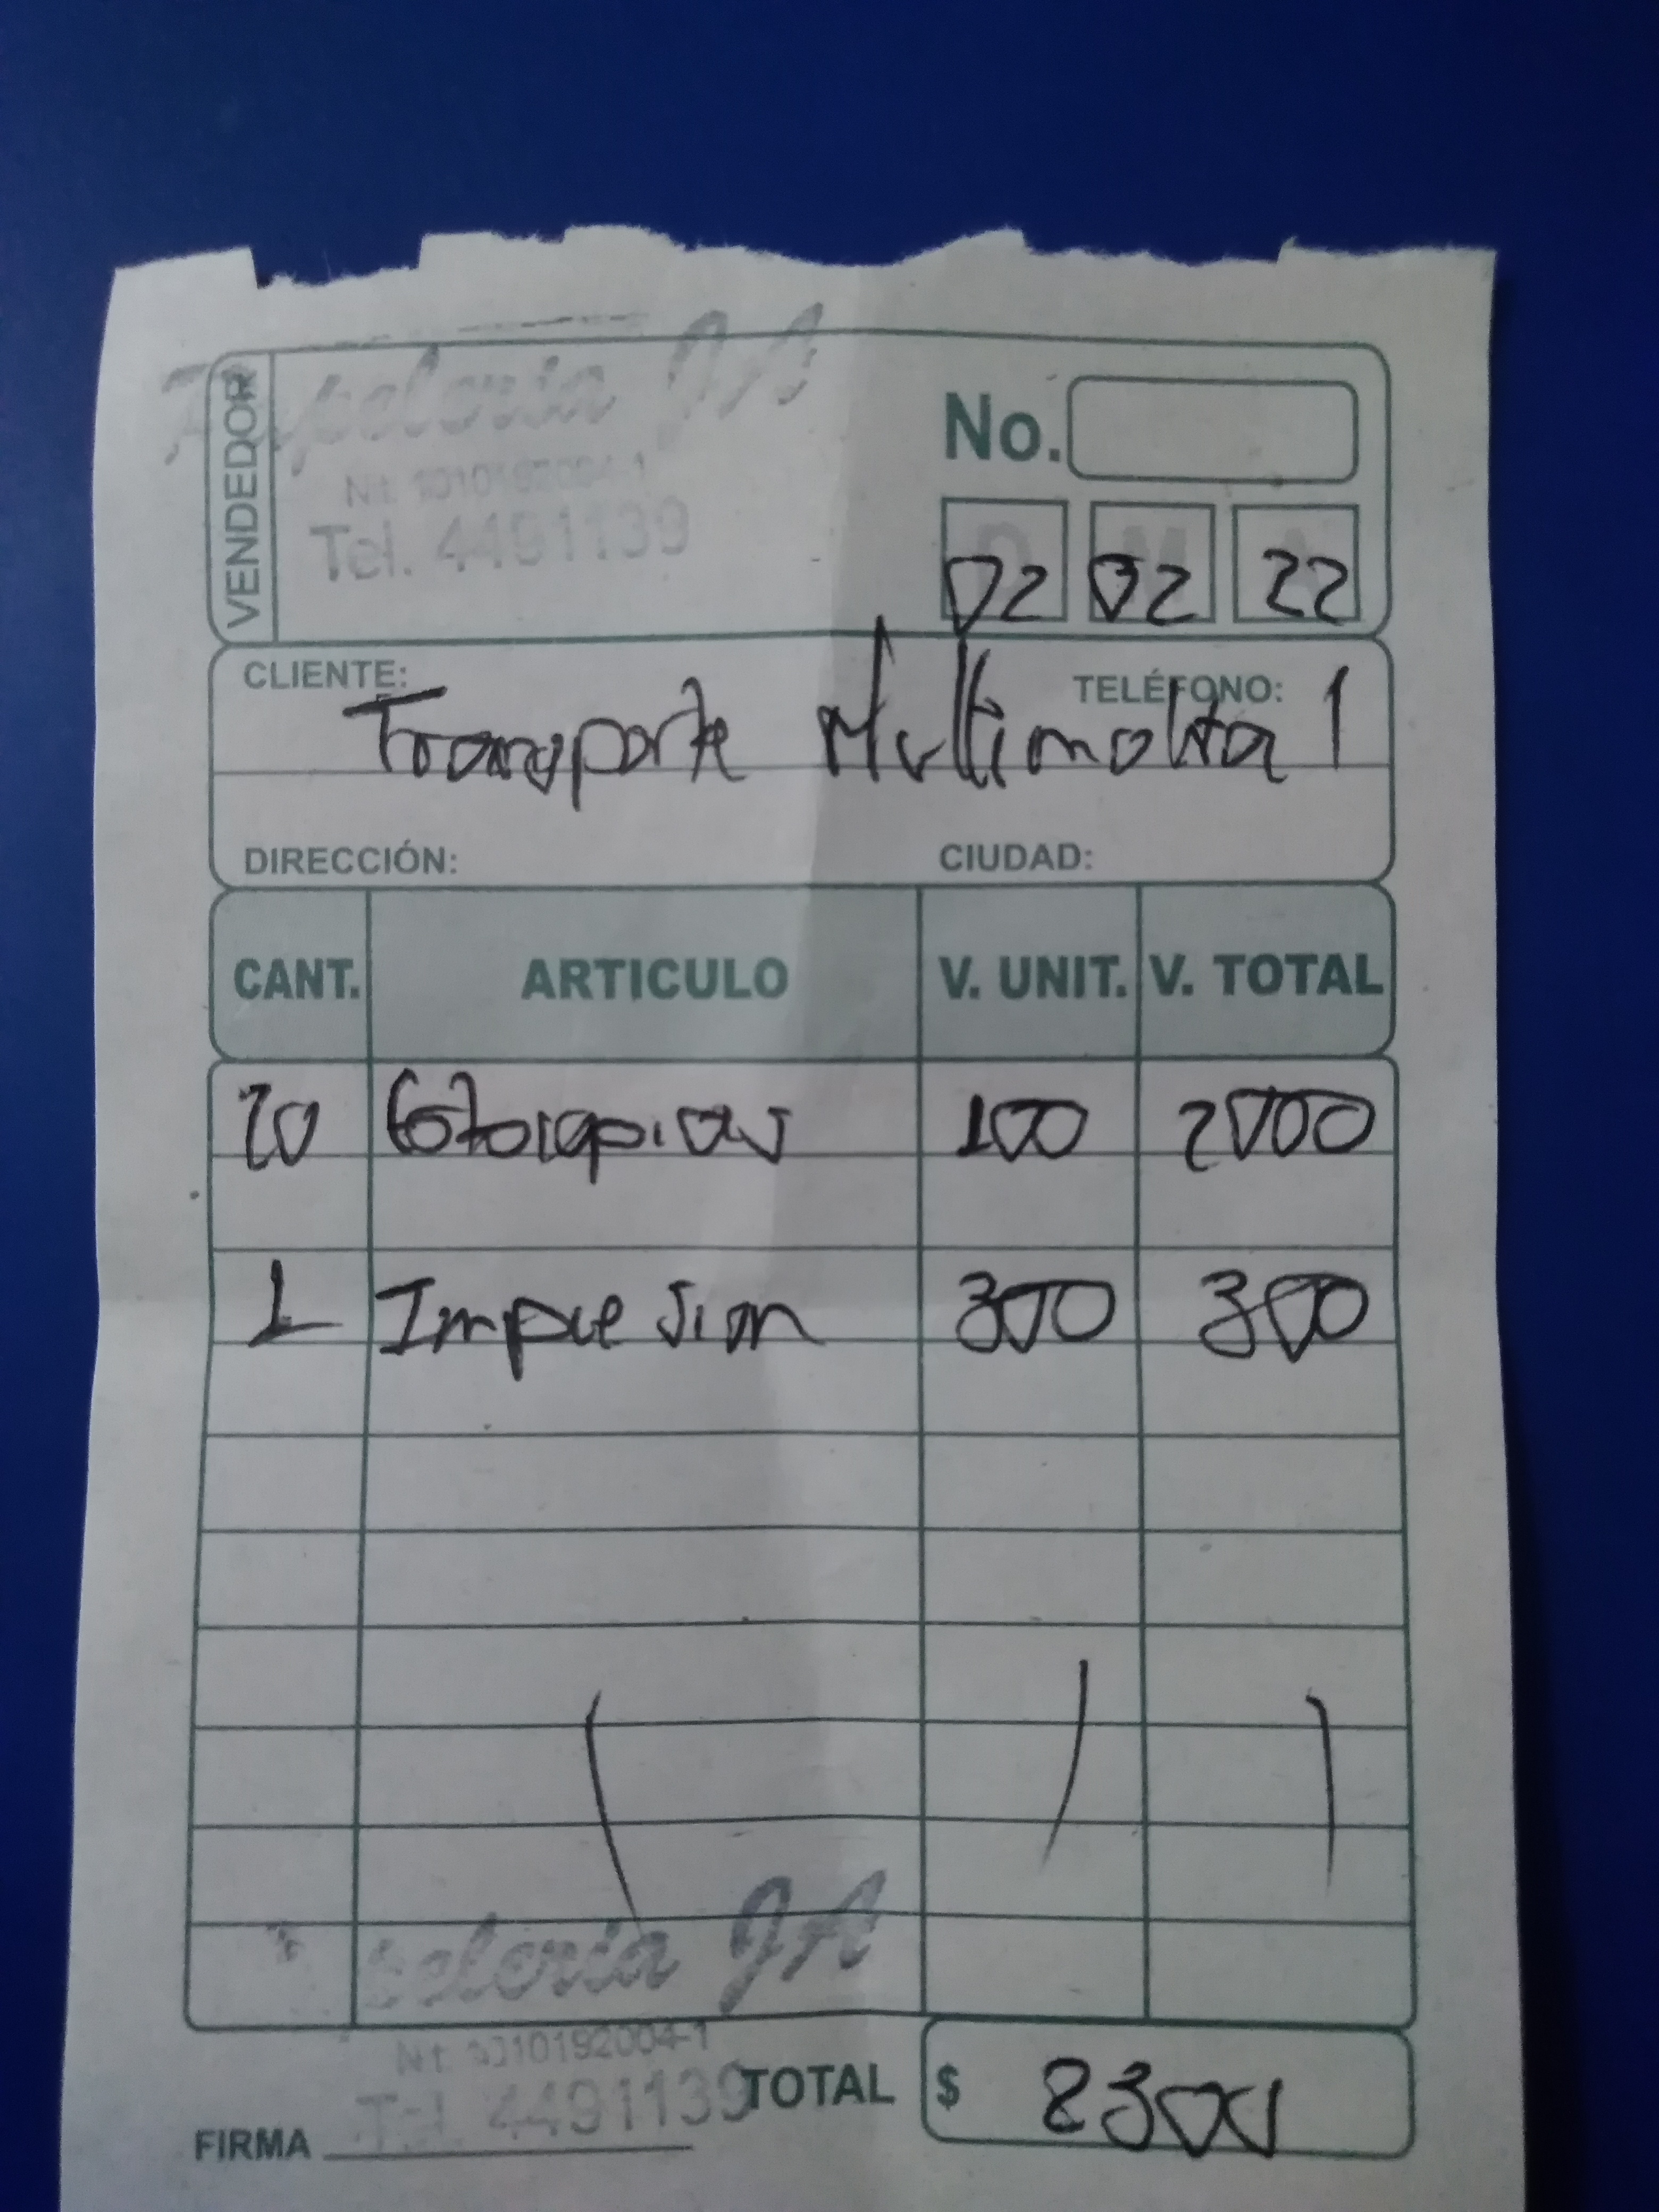 VENDEDOR
Papeleria JA
Nit. 1010192004-1
Tel. 4491139
No.
D M A
02 02 22
CLIENTE: TELÉFONO:
Transporte Multimolta 1
DIRECCIÓN: CIUDAD:
CANT. ARTICULO V. UNIT. V. TOTAL
20 fotocopias 100 2000
1 Impresion 300 300
Papeleria JA
Nit. 1010192004-1
Tel. 4491139
TOTAL $ 2300
FIRMA